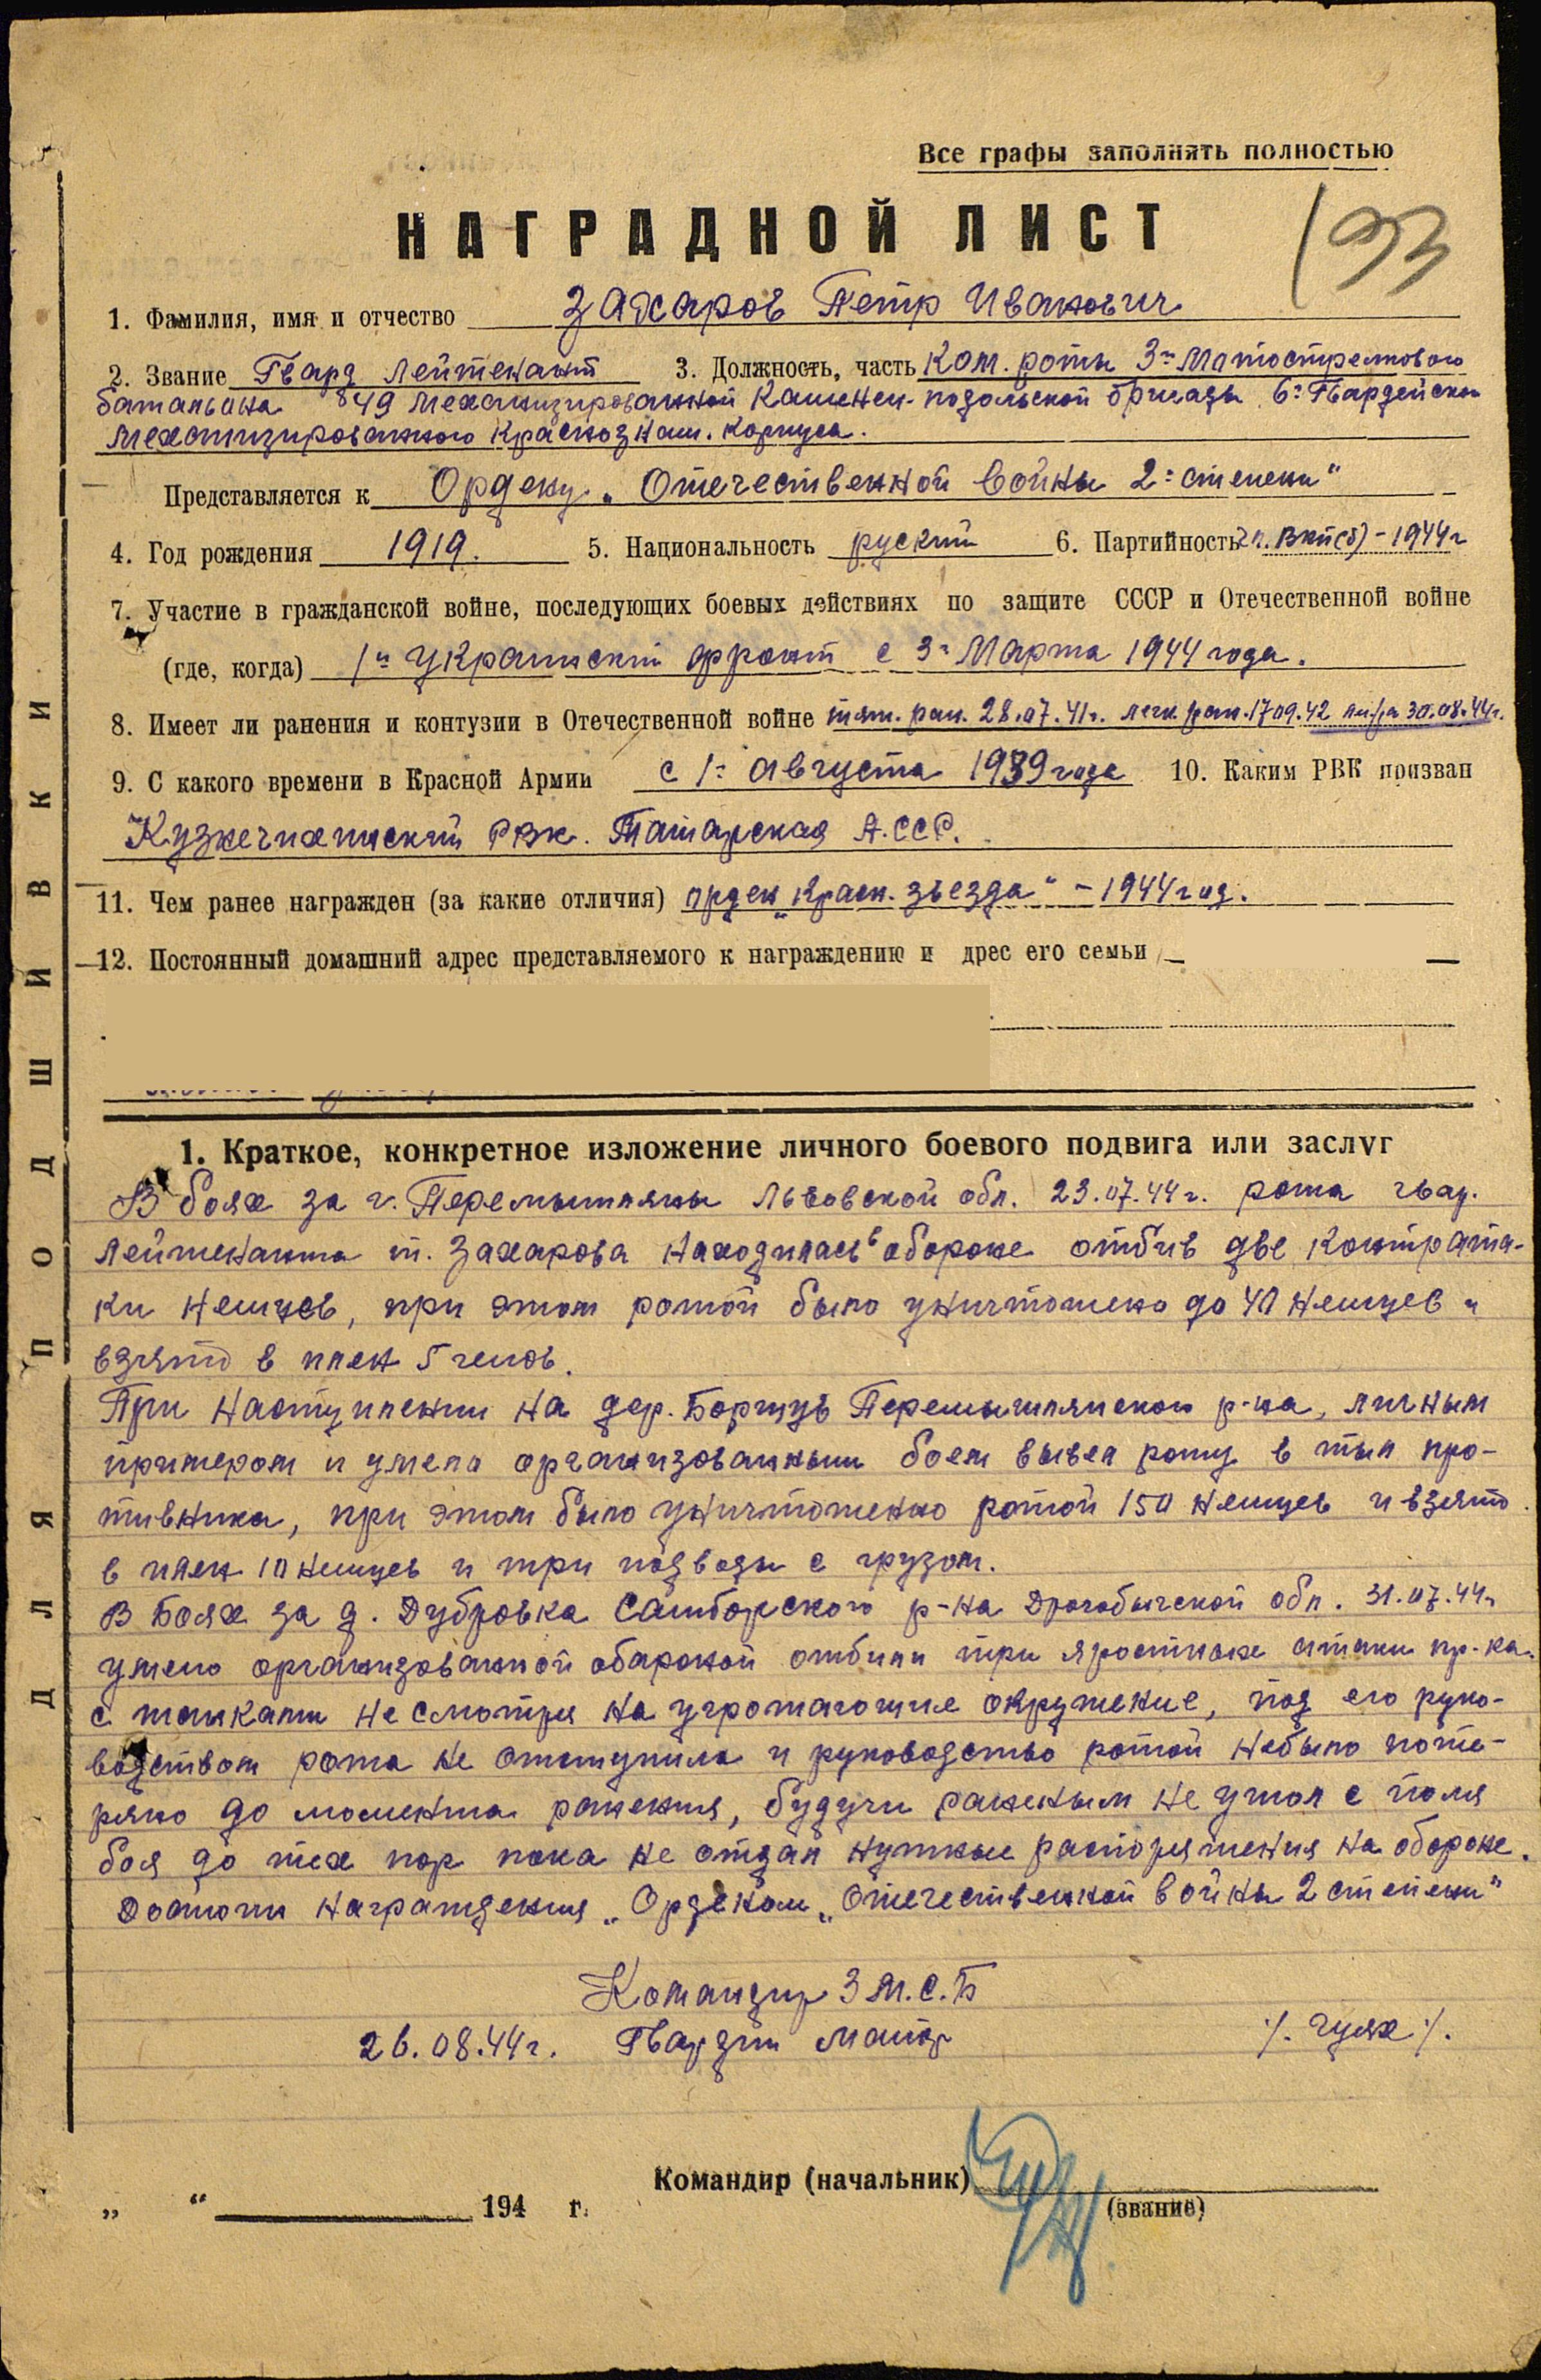 Все графы заполнять полностью
НАГРАДНОЙ ЛИСТ
193
1. Фамилия, имя и отчество Захаров Петр Иванович
2. Звание Гвард Лейтенант 3. Должность, часть Ком. роты 3го Мотострелкового
батальона 49 Механизированной Каменец-подольской бригады 6го Гвардейского
Механизированного Краснознам. Корпуса.
Представляется к Ордену „Отечественной войны 2й степени“
4. Год рождения 1919. 5. Национальность руский 6. Партийность чл. ВКП(б) - 1944г
7. Участие в гражданской войне, последующих боевых действиях по защите СССР и Отечественной войне
(где, когда) 1й Украинский фронт с 3го Марта 1944 года.
8. Имеет ли ранения и контузии в Отечественной войне тяж. ран. 28.07.41г. легк ран. 17.09.42 30.08.44г.
9. С какого времени в Красной Армии с 1го августа 1939 года 10. Каким РВК призван
РВК. Татарская А.ССР.
11. Чем ранее награжден (за какие отличия) орден „Красн. звезда“ - 1944 год.
12. Постоянный домашний адрес представляемого к награждению и дрес его семьи —
ДЛЯ ПОДШИВКИ
1. Краткое, конкретное изложение личного боевого подвига или заслуг
В боях за г. Перемышляны Львовской обл. 23.07.44г. рота гвар.
Лейтенанта т. Захарова находилась в обороне отбив две контрата-
ки немцев, при этом ротой было уничтожено до 40 немцев и
взято в плен 5 челов.
При наступлении на дер. Борщув Перемышлянского р-на, личным
примером и умело организованным боем вывел роту в тыл про-
тивника, при этом было уничтоженно ротой 150 немцев и взято
в плен 10 немцев и три подводы с грузом.
В Боях за д. Дубровка Самборского р-на Дрогобычской обл. 31.07.44г
умело организованной обароной отбили три яростных атаки пр-ка.
с танками не смотря на угрожающие окружение, под его руко-
водством рота не отступила и руководство ротой небыло поте-
ряно до момента ранения, будучи раненым не ушол с поля
боя до тех пор пока не отдал нужные распоряжения на обороне.
Достоин награждения „Орденом „Отечественной войны 2 степени“
Командир 3 М.С.Б
26.08.44г. Гвардии Майор /. Гулях /.
Командир (начальник)
„ “ 194 г. (звание)